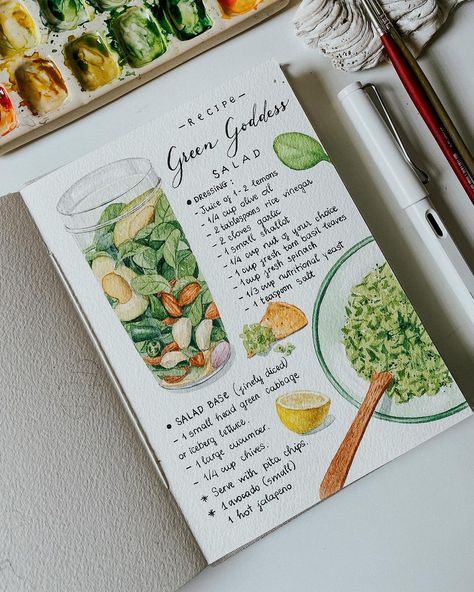 - RECIPE -
Green Goddess
SALAD
• DRESSING:
- Juice of 1-2 lemons
- 1/4 cup olive oil
- 2 tablespoons rice vinegar
- 2 cloves garlic
- 1 small shallot
- 1/4 cup nut of your choice
- 1 cup fresh torn basil leaves
- 1 cup fresh spinach
- 1/3 cup nutritional yeast
- 1 teaspoon salt
• SALAD BASE (finely diced)
- 1 small head green cabbage
or iceberg lettuce.
- 1 large cucumber.
- 1/4 cup chives.
* Serve with pita chips.
* 1 avosado (small)
1 hot jalapeno